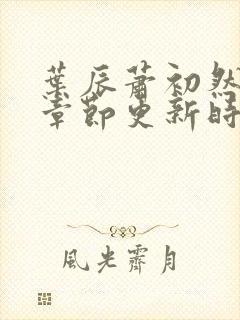 葉辰蕭初然
章節更新時
風光霽月